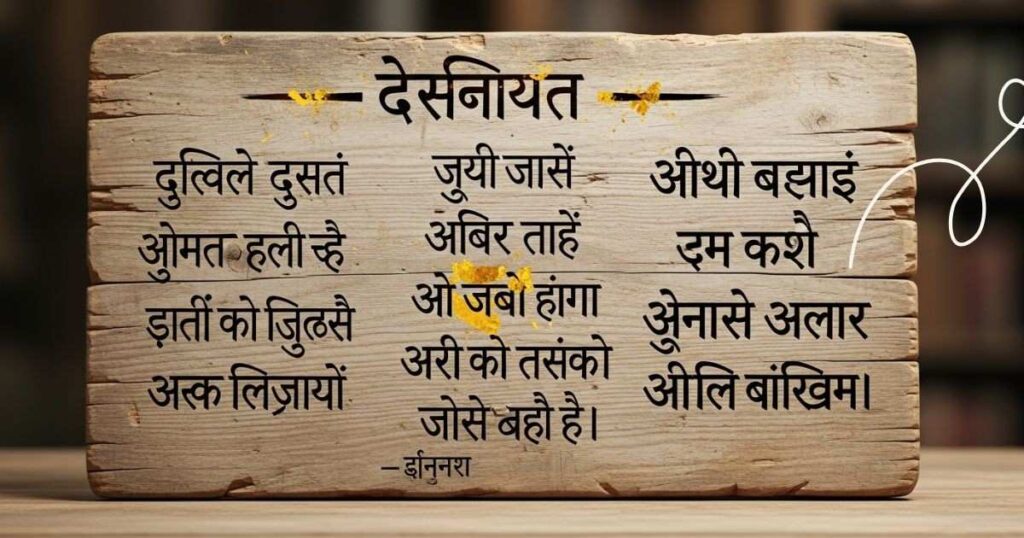 देसनियत
दुत्विले दुसतं
ओुमत हली व्है
ड़ातीं को जुिढसै
अत्क लिज़ायों
जुयी जासें
अबिर ताहें
ओ जबो हांगा
अरी को तसंको
जोसे बहौ है।
अीथी बझाइं
दम कशै
अेुनासे अलार
अीलि बांखिम।